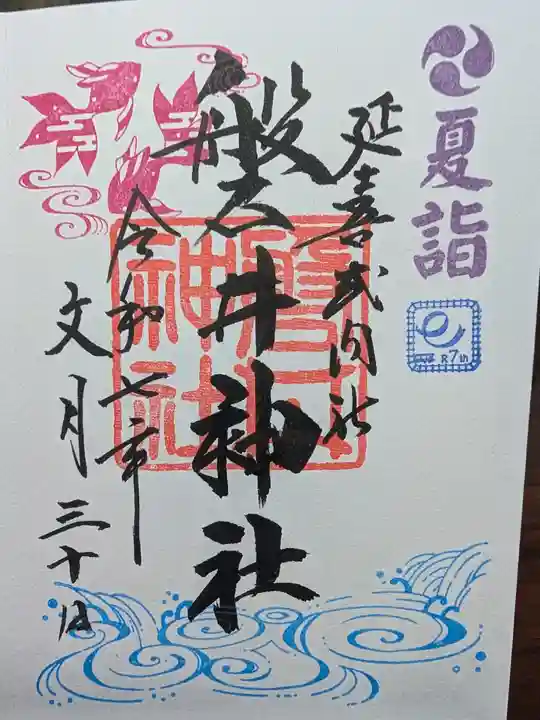 夏詣
R7th
延喜式内社
磐井神社
磐井神社
令和七年
文月三十日